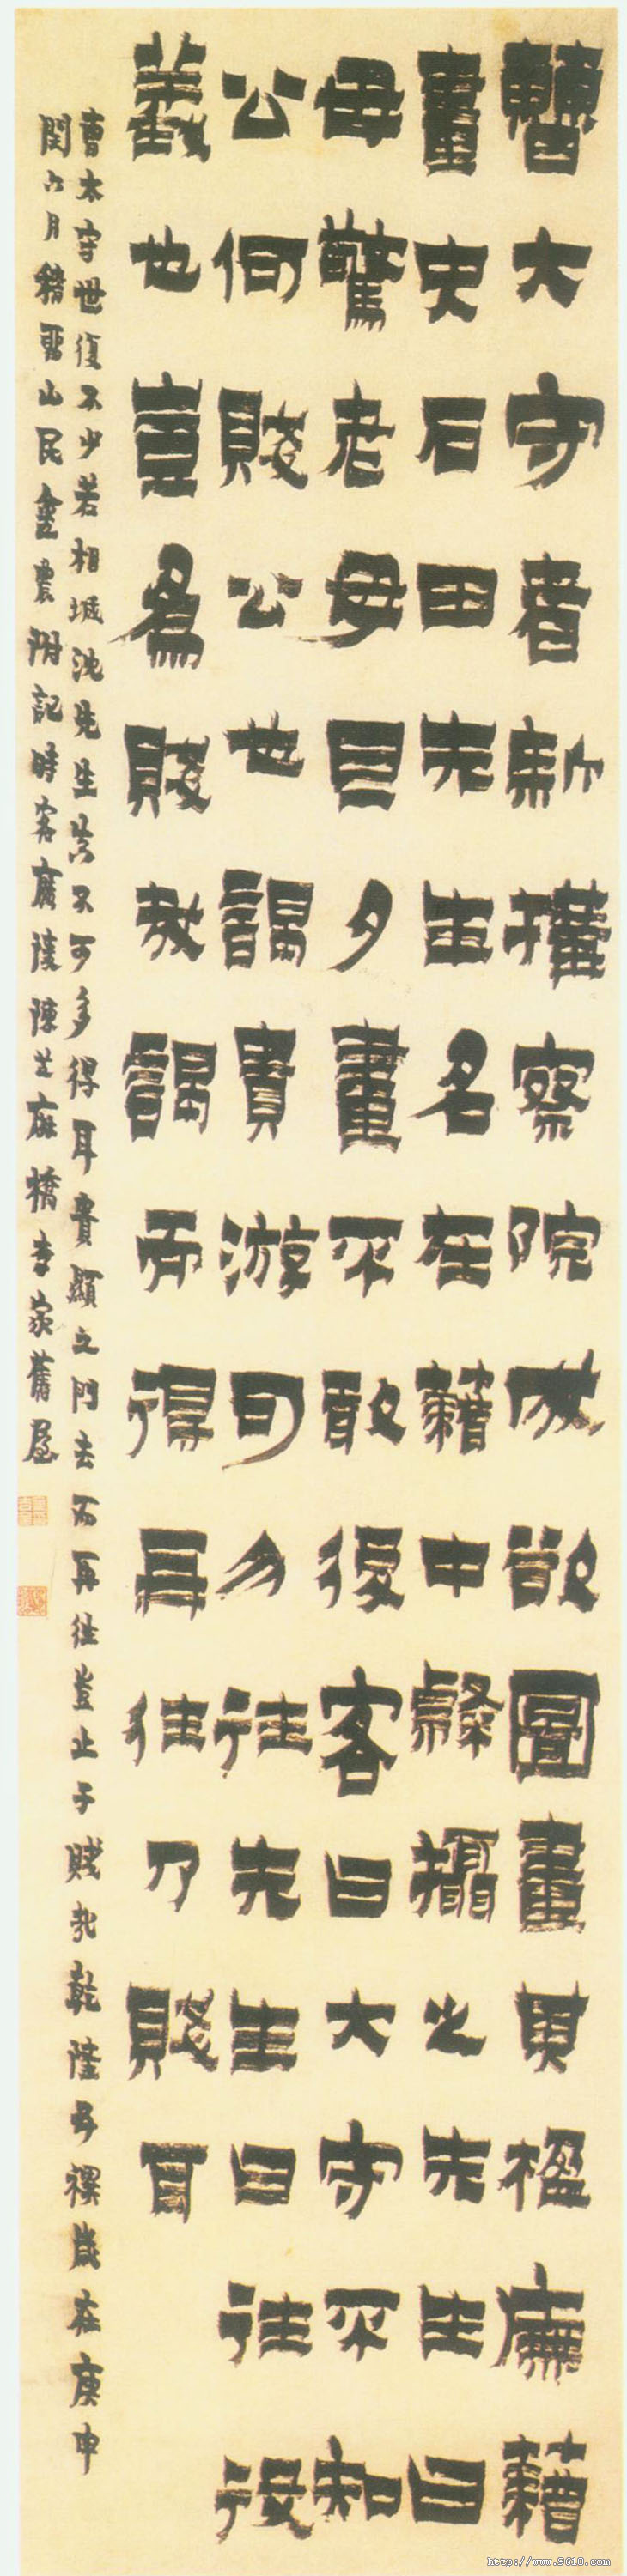 曹大守者新搆察院成欲圖畫其楹廡藉
畫史石田先生名在藉中隸攝之先生曰
毋驚老母旦夕畫不敢後客曰大守不知
公何賤公也謁貴游可勿往先生曰往役
義也豈為賤哉謁而得再往乃賤耳
曹太守世復不少若相城沈先生其不可多得耳貴顯之門去而再往豈止于賤哉乾隆五禩歲在庚申
閏六月稽留山民金農附記時客廣陵陳芝麻橋李家舊屋
http://www.9610.com